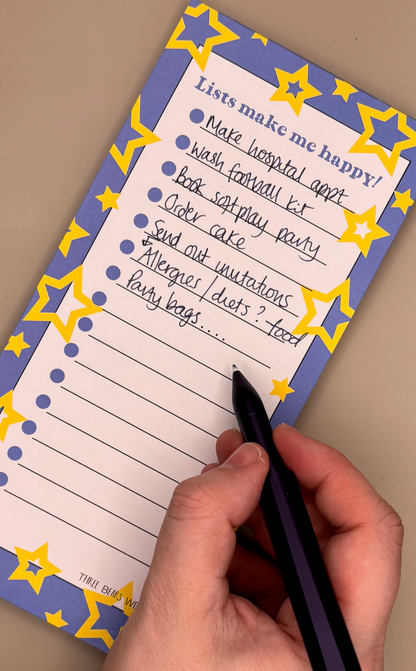 Lists make me happy!
Make hospital appt
Wash football kit
Book softplay party
Order cake
Send out invitations
↳ Allergies / diets? food
Party bags.....
THREE BEARS WO